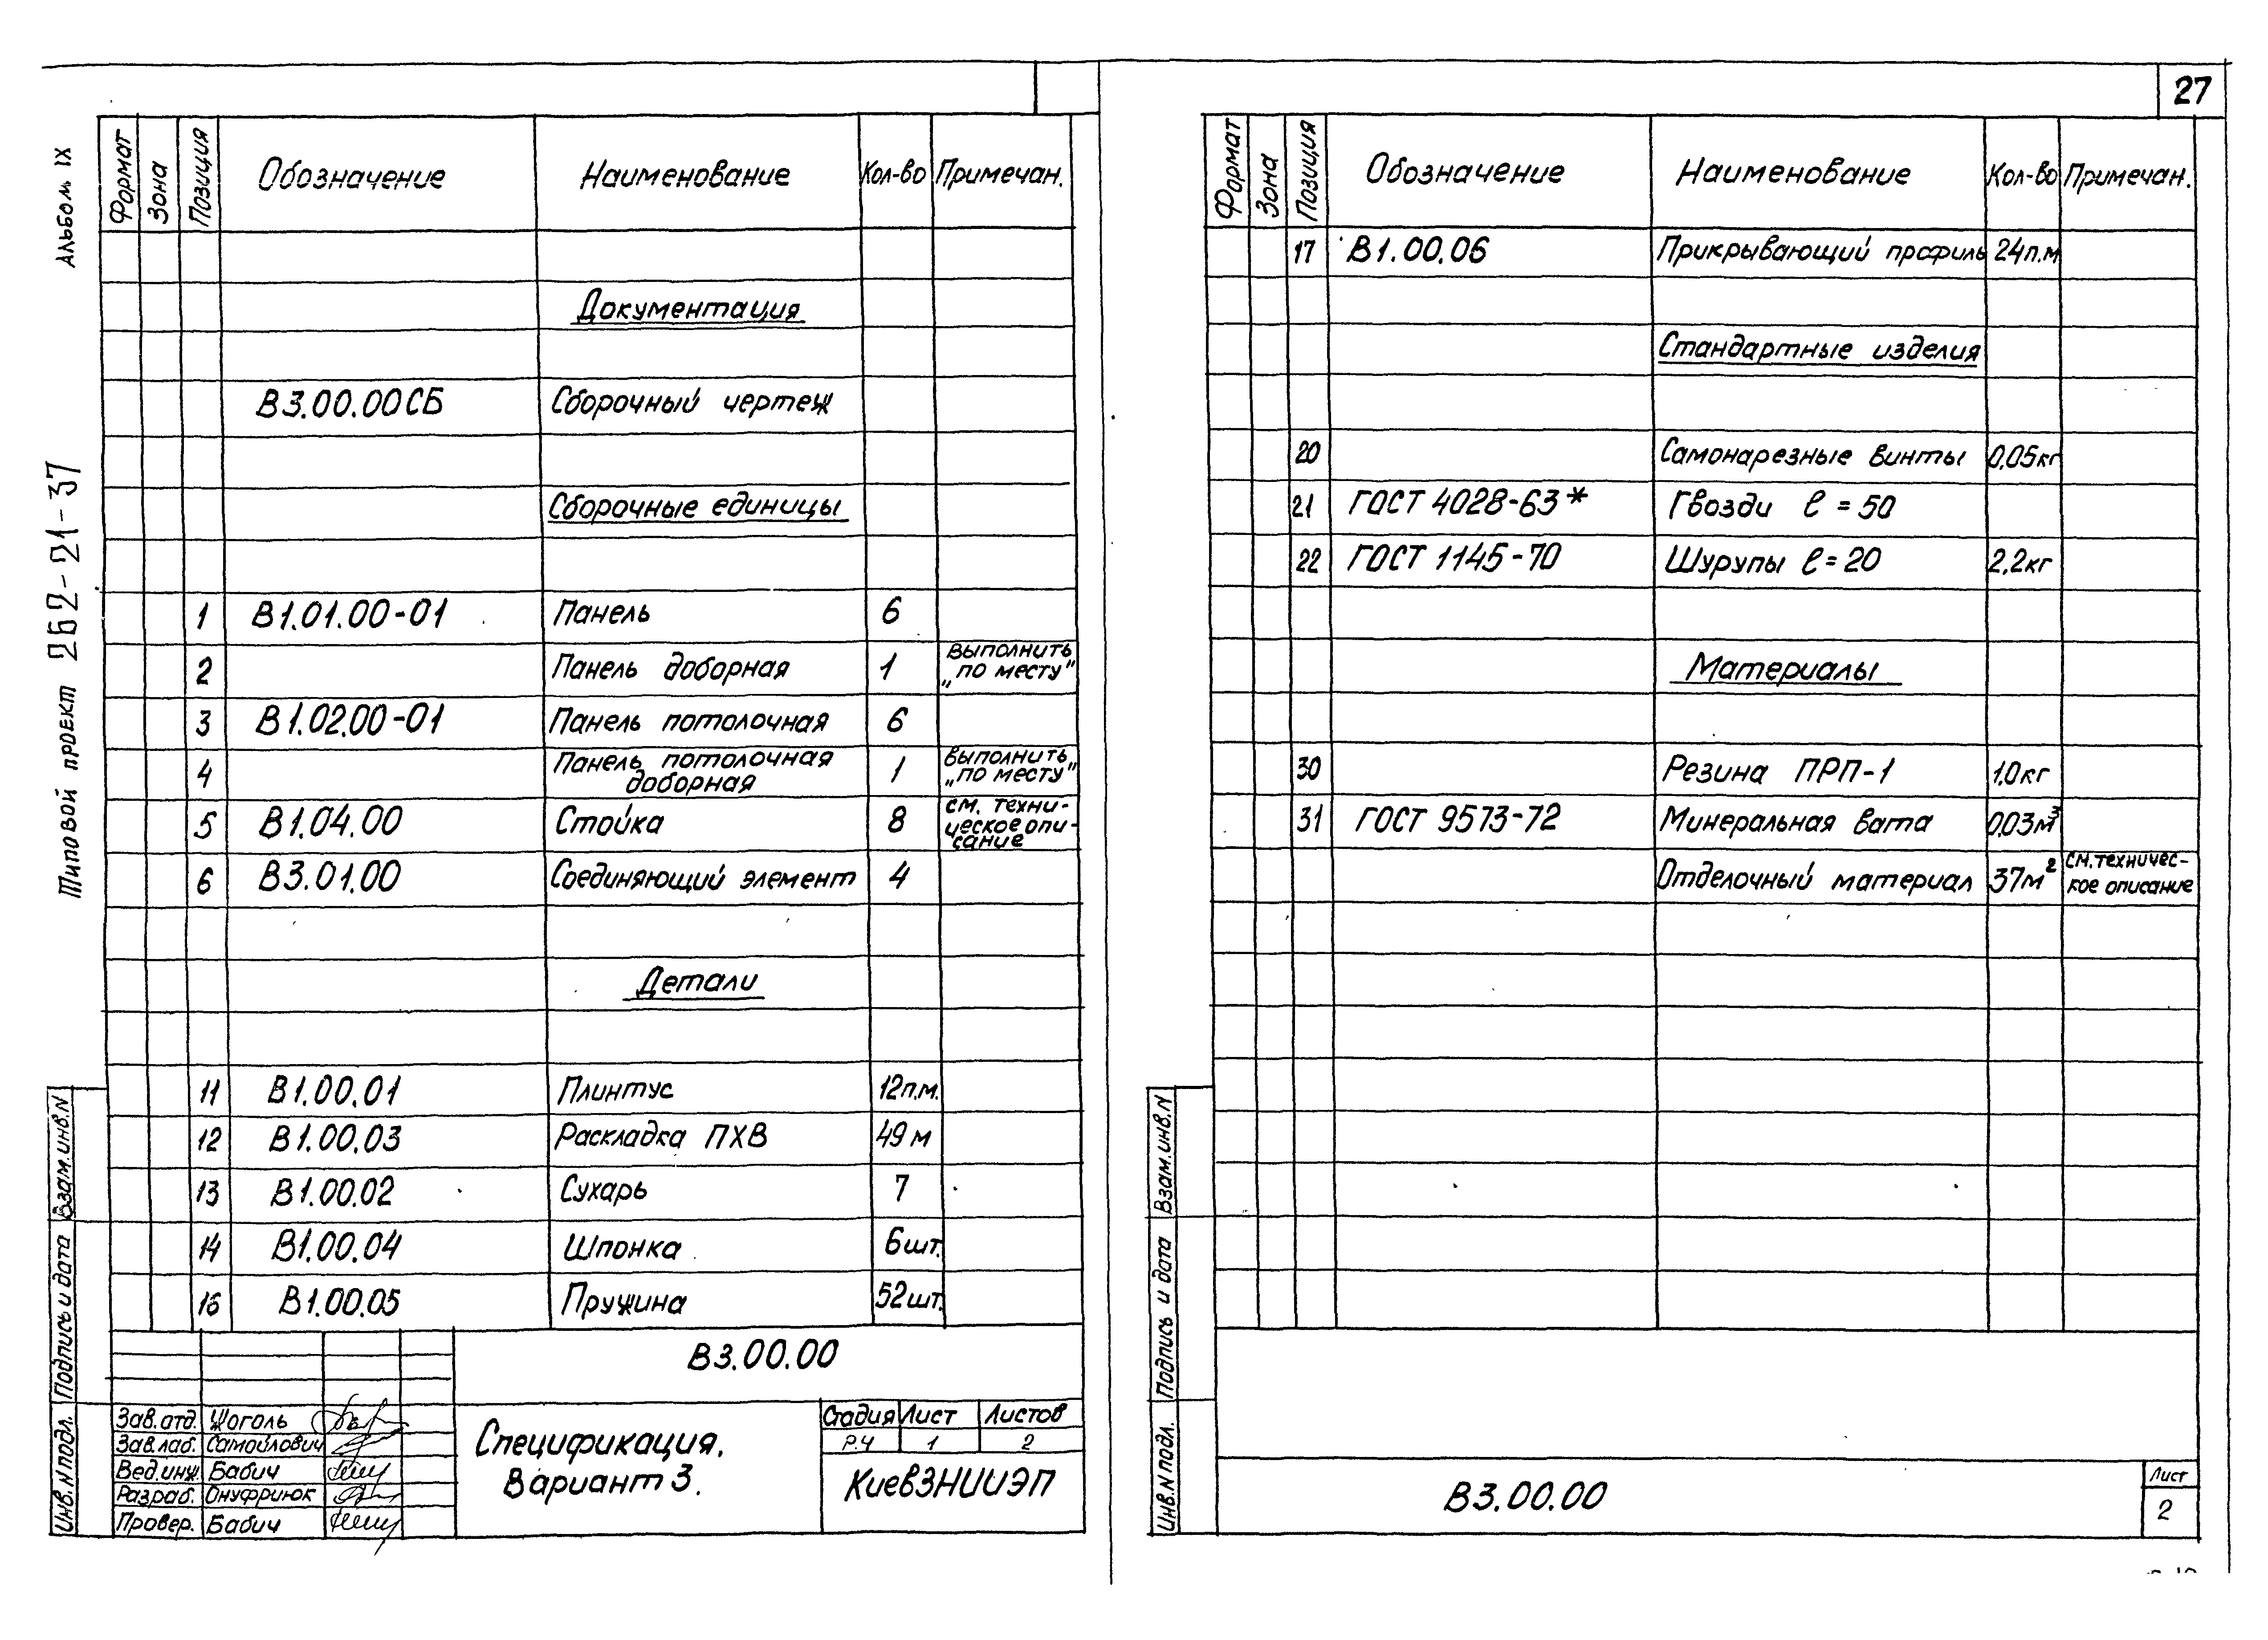 27
Альбом IX
Типовой проект 262-21-37
Формат Зона Позиция Обозначение Наименование Кол-во Примечан.
Документация
В3.00.00СБ Сборочный чертеж
Сборочные единицы
1 В1.01.00-01 Панель 6
2 Панель доборная 1 выполнить „по месту"
3 В1.02.00-01 Панель потолочная 6
4 Панель потолочная доборная 1 выполнить „по месту"
5 В1.04.00 Стойка 8 см. техни-
ческое опи-
сание
6 В3.01.00 Соединяющий элемент 4
Детали
11 В1.00.01 Плинтус 12п.м.
12 В1.00.03 Раскладка ПХВ 49м
13 В1.00.02 Сухарь 7
14 В1.00.04 Шпонка 6шт.
16 В1.00.05 Пружина 52шт.
В3.00.00
Зав.отд. Жоголь
Зав.лаб. Самойлович
Вед.инж. Бабич
Разраб. Онуфриюк
Провер. Бабич
Спецификация.
Вариант 3.
Стадия Лист Листов
Р.Ч 1 2
КиевЗНИИЭП
Инв.N подл. Подпись и дата Взам.инв.N
Формат Зона Позиция Обозначение Наименование Кол-во Примечан.
17 В1.00.06 Прикрывающий профиль 24п.м
Стандартные изделия
20 Самонарезные винты 0,05кг
21 ГОСТ 4028-63* Гвозди ℓ = 50
22 ГОСТ 1145-70 Шурупы ℓ = 20 2,2кг
Материалы
30 Резина ПРП-1 1,0кг
31 ГОСТ 9573-72 Минеральная вата 0,03м³
Отделочный материал 37м² см.техничес-
кое описание
Инв.N подл. Подпись и дата Взам.инв.N
В3.00.00
Лист
2